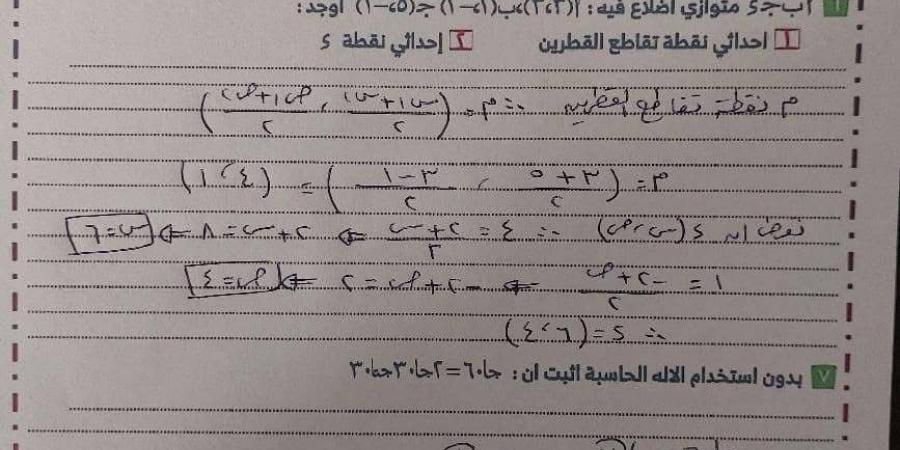 ٦ أ ب ج د متوازي اضلاع فيه : أ(٣،٣)
١ احداثي نقطة تقاطع القطرين ٢ إحداثي نقطة د
م نقطة تقاطع القطرين ∴ م = (س١+س٢/٢ , ص١+ص٢/٢)
م = (٣+٥/٢ ، ٣-١/٢) = (٤،١)
نفرض ان د(س،ص) ∴ ٤ = ٢+س/٢ ⇐ ٢+س=٨ ⇐ س=٦
١ = -٢+ص/٢ ⇐ -٢+ص=٢ ⇐ ص=٤
∴ د = (٦،٤)
٧ بدون استخدام الاله الحاسبة اثبت ان : جا٦٠=٢جا٣٠جتا٣٠